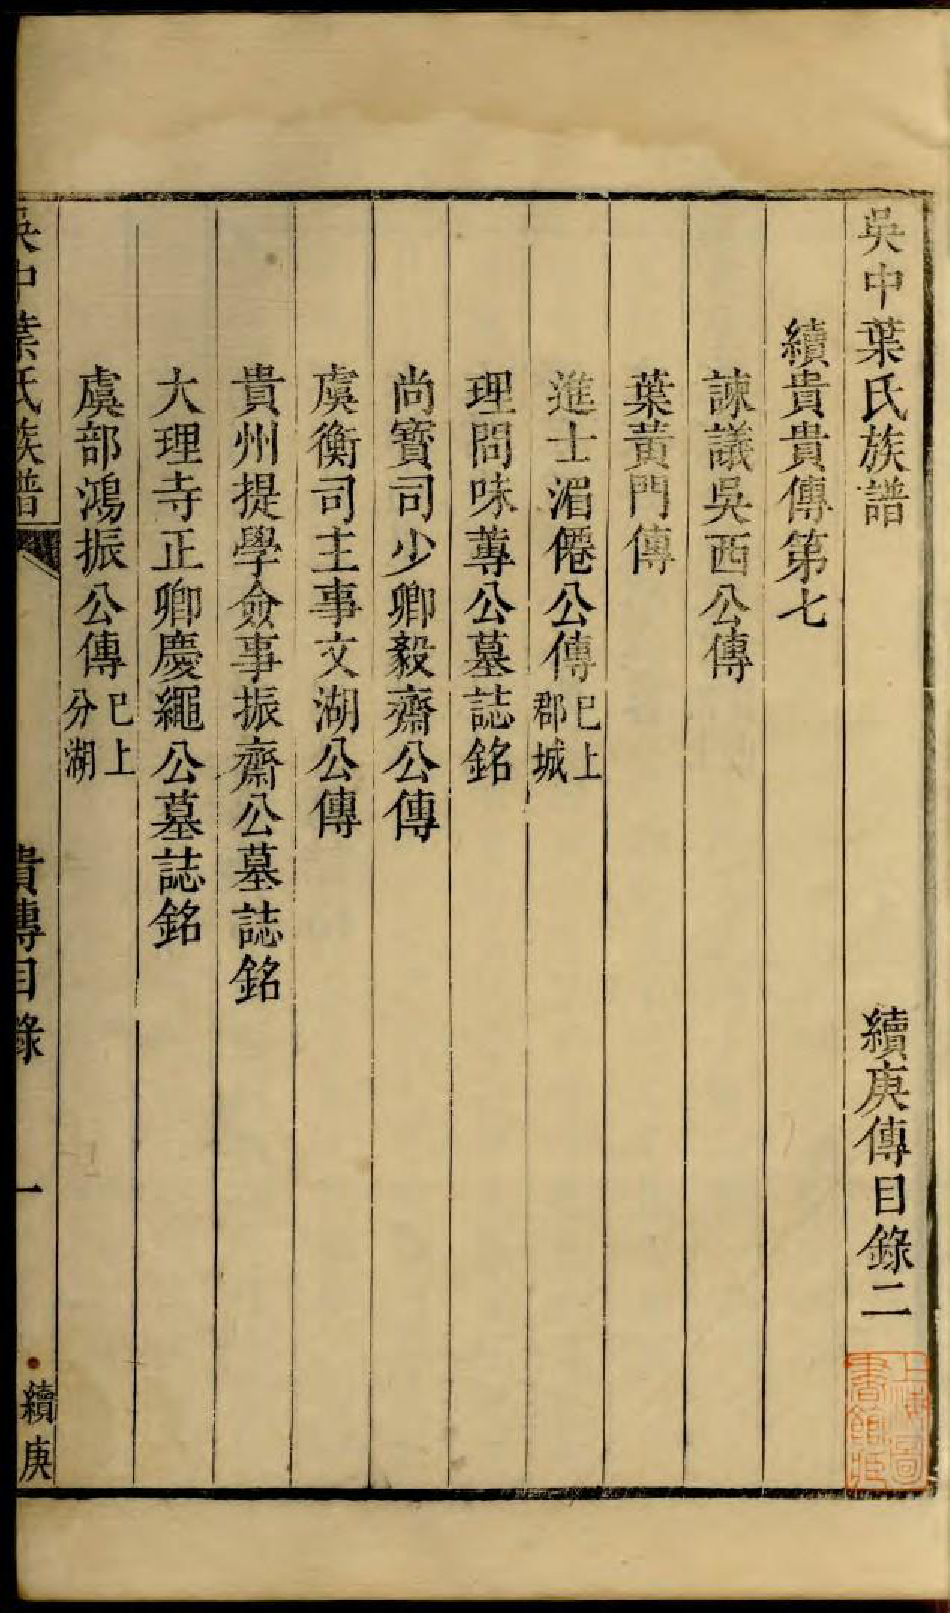 吳中葉氏族譜 續庚傳目錄二
續貴貴傳第七
諫議吳西公傳
葉黃門傳
進士湄僊公傳 已上郡城
理問味蓴公墓誌銘
尚寶司少卿毅齋公傳
虞衡司主事文湖公傳
貴州提學僉事振齋公墓誌銘
大理寺正卿慶繩公墓誌銘
虞部鴻振公傳 已上分湖
吳中葉氏族譜 貴傳目錄 一 續庚
上海圖書館藏